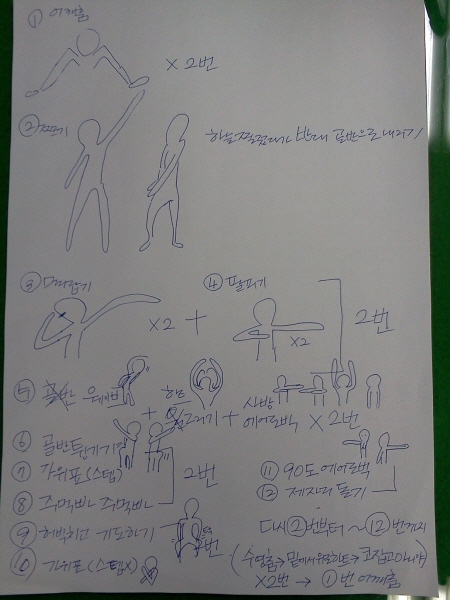 ① 어깨춤
× 2번
② 찌르기
하늘 찔렀다가 반대 골반으로 내리기
③ 머리감기
×2 +
④ 팔펴기
×2
2번
⑤ 웨이브
+ + 사방 에어로빅 × 2번
⑥ 골반 튕기기
⑦ 가위표 (스텝)
⑧ 주먹빠 주먹빠
2번
⑨ 허벅치고 기도하기
번
⑩ 가위표 (스텝X)
⑪ 90도 에어로빅
⑫ 제자리 돌기
다시 ②번부터 ~ ⑫번까지
(수영춤 → 밑에서 → 코잡고
×2번 → ①번 어깨춤